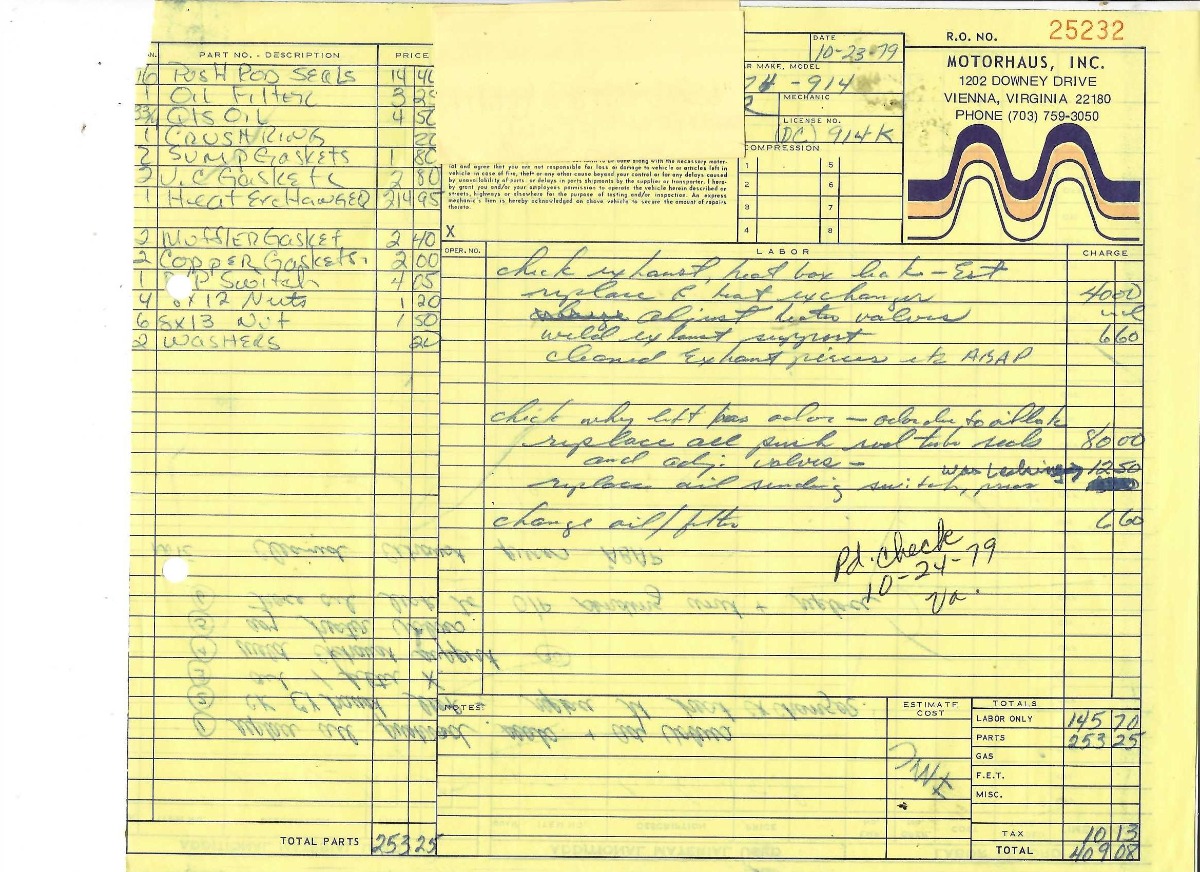 R.O. NO. 25232
MOTORHAUS, INC.
1202 DOWNEY DRIVE
VIENNA, VIRGINIA 22180
PHONE (703) 759-3050
DATE
10-23-79
MAKE, MODEL
-914
MECHANIC
LICENSE NO.
(DC) 914K
COMPRESSION
1 5
2 6
3 7
4 8
PART NO. - DESCRIPTION PRICE
16 PUSH ROD SEALS 14 40
1 OIL FILTER 3 25
QTS OIL 4 50
1 CRUSH RING
2 SUMP GASKETS 1 80
2 V.C GASKETS 2 80
1 HEAT EXCHANGER 214 95
2 MUFFLER GASKET 2 40
2 COPPER GASKETS 2 00
1 P Switch 4 05
4 8x12 Nuts 1 20
6 8x13 Nut 1 50
2 WASHERS
TOTAL PARTS 253 25
to be done along with the necessary mater-
ial and agree that you are not responsible for loss or damage to vehicle or articles left in
vehicle in case of fire, theft or any other cause beyond your control or for any delays caused
by unavailability of parts or delays in parts shipments by the supplier or transporter. I here-
by grant you and/or your employees permission to operate the vehicle herein described on
streets, highways or elsewhere for the purpose of testing and/or inspection. An express
mechanic's lien is hereby acknowledged on above vehicle to secure the amount of repairs
thereto.
X
OPER. NO. LABOR CHARGE
check exhaust, heat box leaks - Est
replace R heat exchanger 40 00
adjust heater valves
weld exhaust support 6 60
cleaned Exhaust pieces ABAP
check why left has odor - odor due to oil leak
replace all push rod tube seals 80 00
and adj. valves -
was leaking 12 50
replace oil sending switch,
change oil/filter 6 60
Pd. check
10-24-79
Va.
NOTES:
ESTIMATE
COST
TOTALS
LABOR ONLY 145 70
PARTS 253 25
GAS
F.E.T.
MISC.
TAX 10 13
TOTAL 409 08